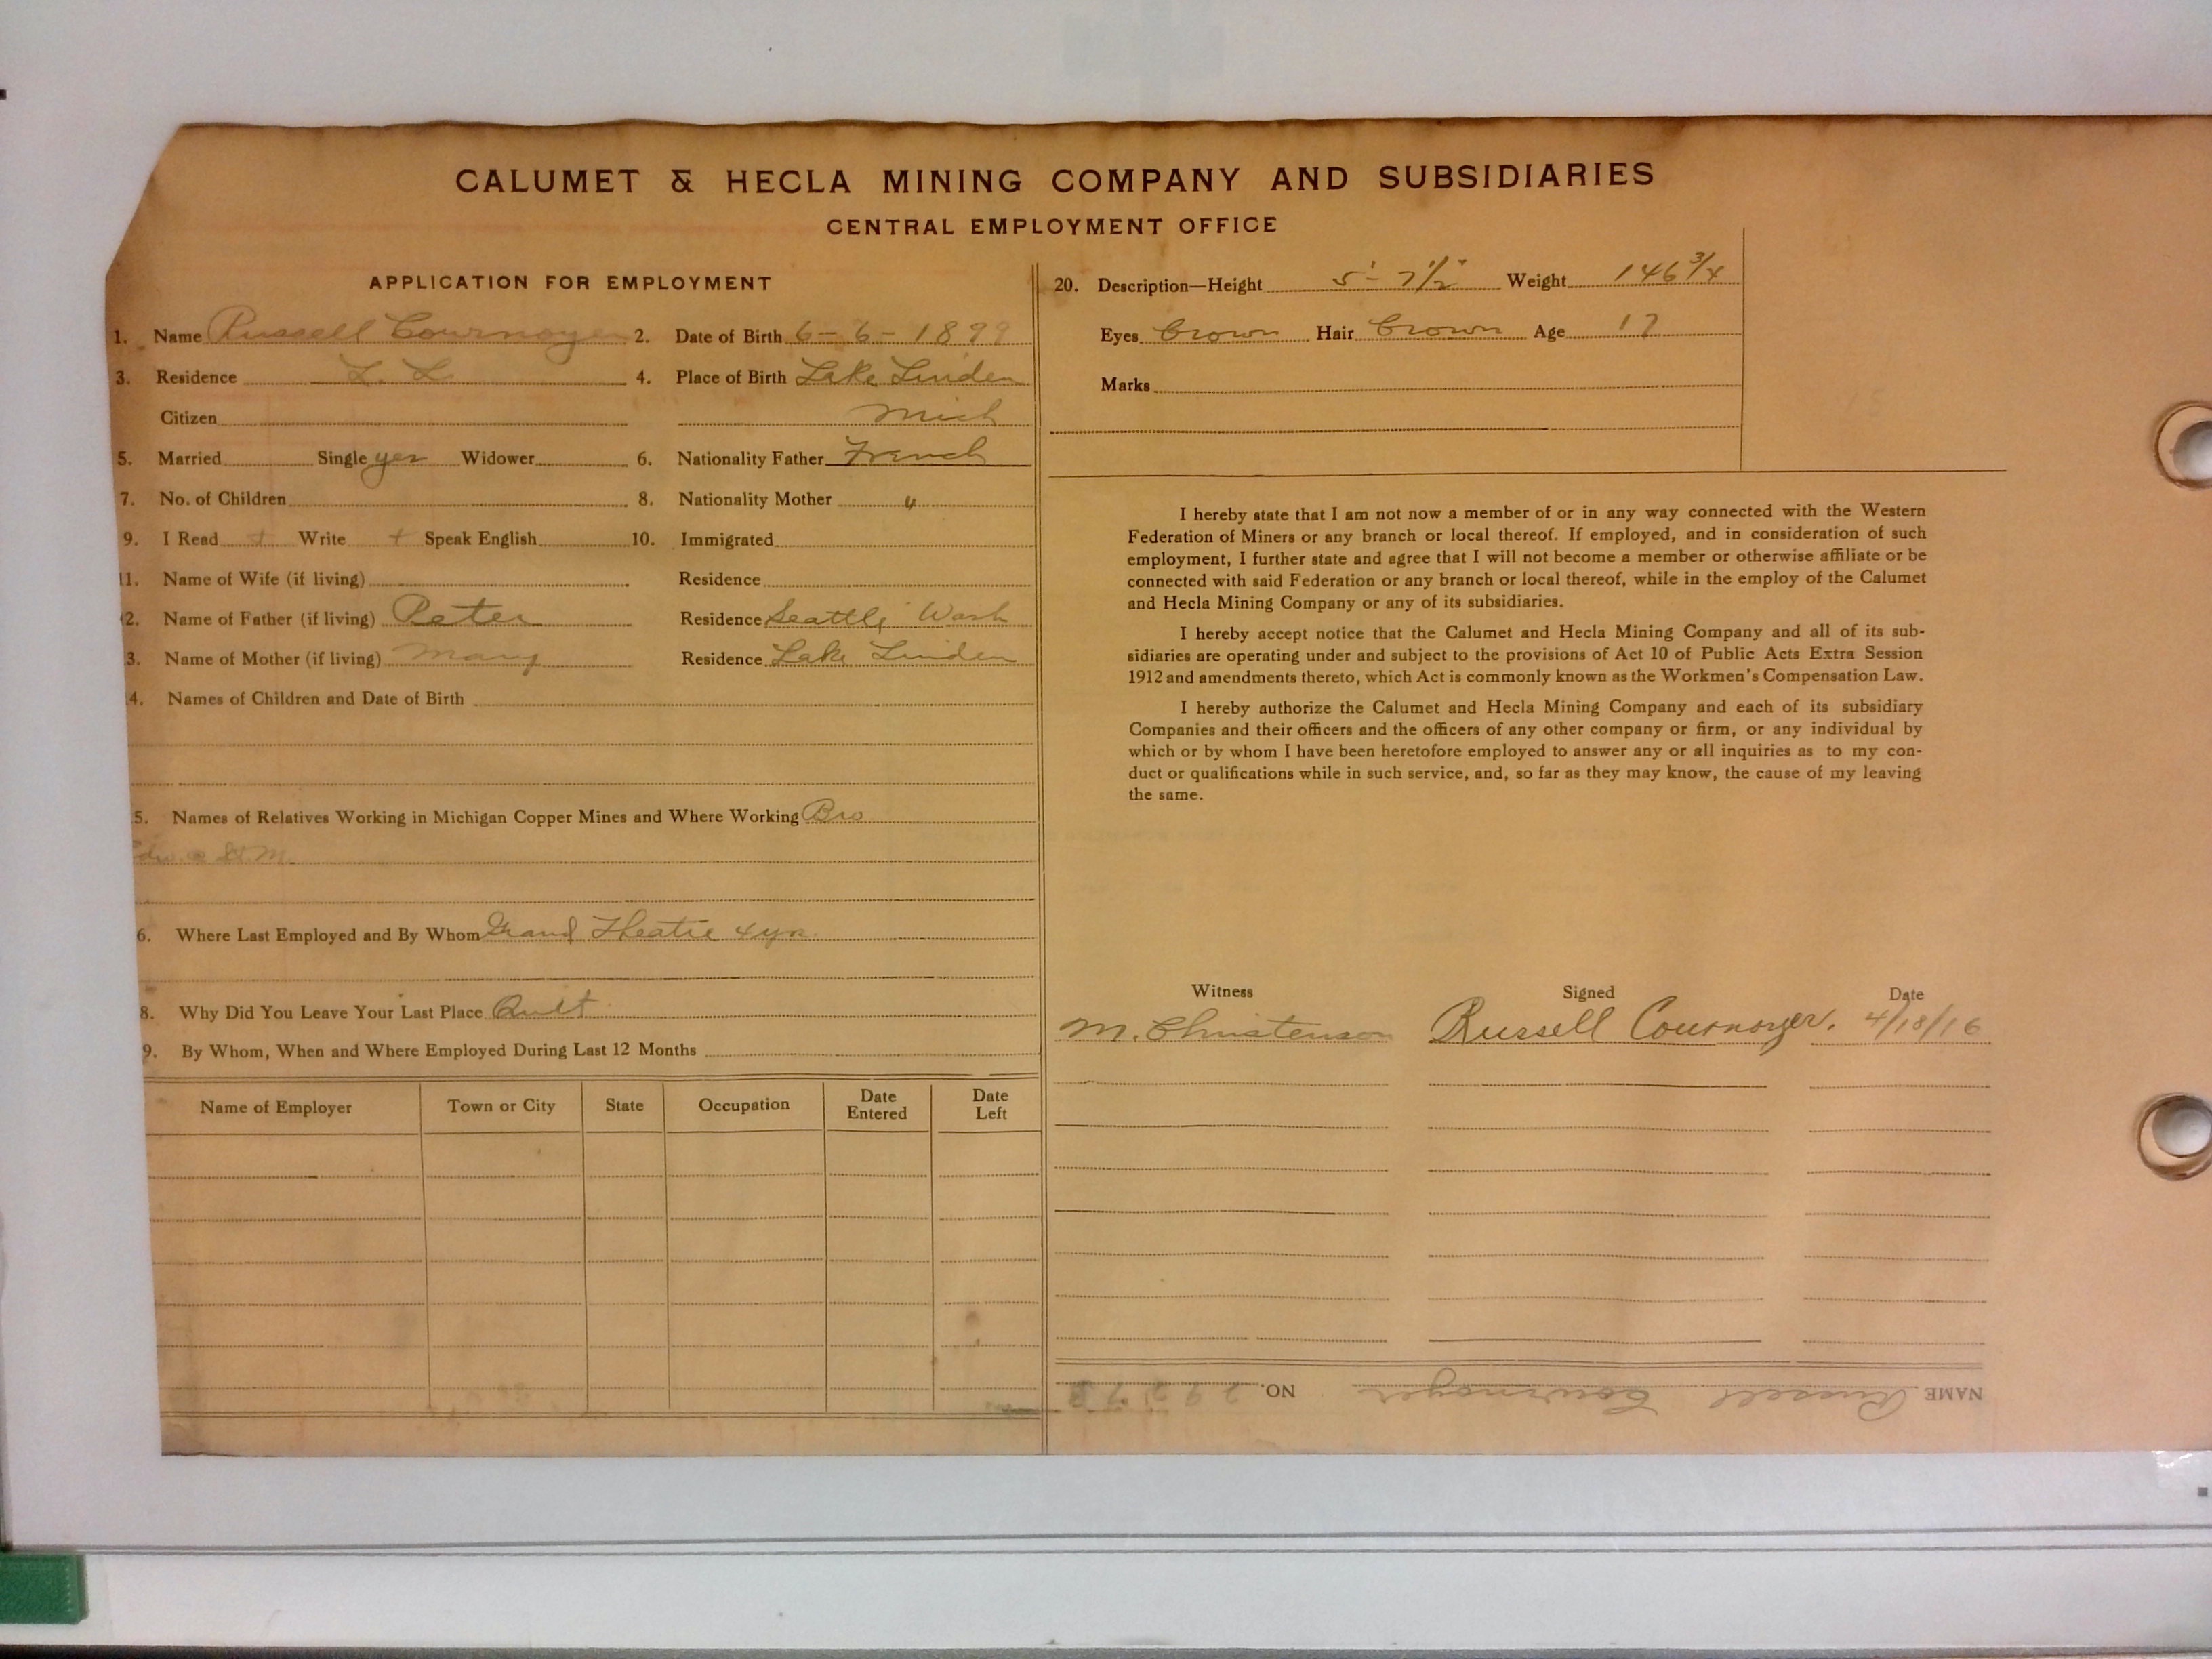 CALUMET & HECLA MINING COMPANY AND SUBSIDIARIES
CENTRAL EMPLOYMENT OFFICE
APPLICATION FOR EMPLOYMENT
1. Name Russell Cournoyer 2. Date of Birth 6-6-1899
3. Residence L. L. 4. Place of Birth Lake Linden
Citizen Mich
5. Married Single yes Widower 6. Nationality Father French
7. No. of Children 8. Nationality Mother "
9. I Read + Write + Speak English 10. Immigrated
11. Name of Wife (if living) Residence
2. Name of Father (if living) Peter Residence Seattle, Wash
3. Name of Mother (if living) Mary Residence Lake Linden
4. Names of Children and Date of Birth
5. Names of Relatives Working in Michigan Copper Mines and Where Working Bro
Edw. @ St. M.
6. Where Last Employed and By Whom Grand Theatre 4 yrs.
8. Why Did You Leave Your Last Place Quit
9. By Whom, When and Where Employed During Last 12 Months
Name of Employer Town or City State Occupation Date Entered Date Left
20. Description—Height 5'-7 1/2" Weight 146 3/4
Eyes brown Hair brown Age 17
Marks
I hereby state that I am not now a member of or in any way connected with the Western
Federation of Miners or any branch or local thereof. If employed, and in consideration of such
employment, I further state and agree that I will not become a member or otherwise affiliate or be
connected with said Federation or any branch or local thereof, while in the employ of the Calumet
and Hecla Mining Company or any of its subsidiaries.
I hereby accept notice that the Calumet and Hecla Mining Company and all of its sub-
sidiaries are operating under and subject to the provisions of Act 10 of Public Acts Extra Session
1912 and amendments thereto, which Act is commonly known as the Workmen's Compensation Law.
I hereby authorize the Calumet and Hecla Mining Company and each of its subsidiary
Companies and their officers and the officers of any other company or firm, or any individual by
which or by whom I have been heretofore employed to answer any or all inquiries as to my con-
duct or qualifications while in such service, and, so far as they may know, the cause of my leaving
the same.
Witness Signed Date
M. Christenson Russell Cournoyer. 4/18/16
NAME Russell Cournoyer NO.